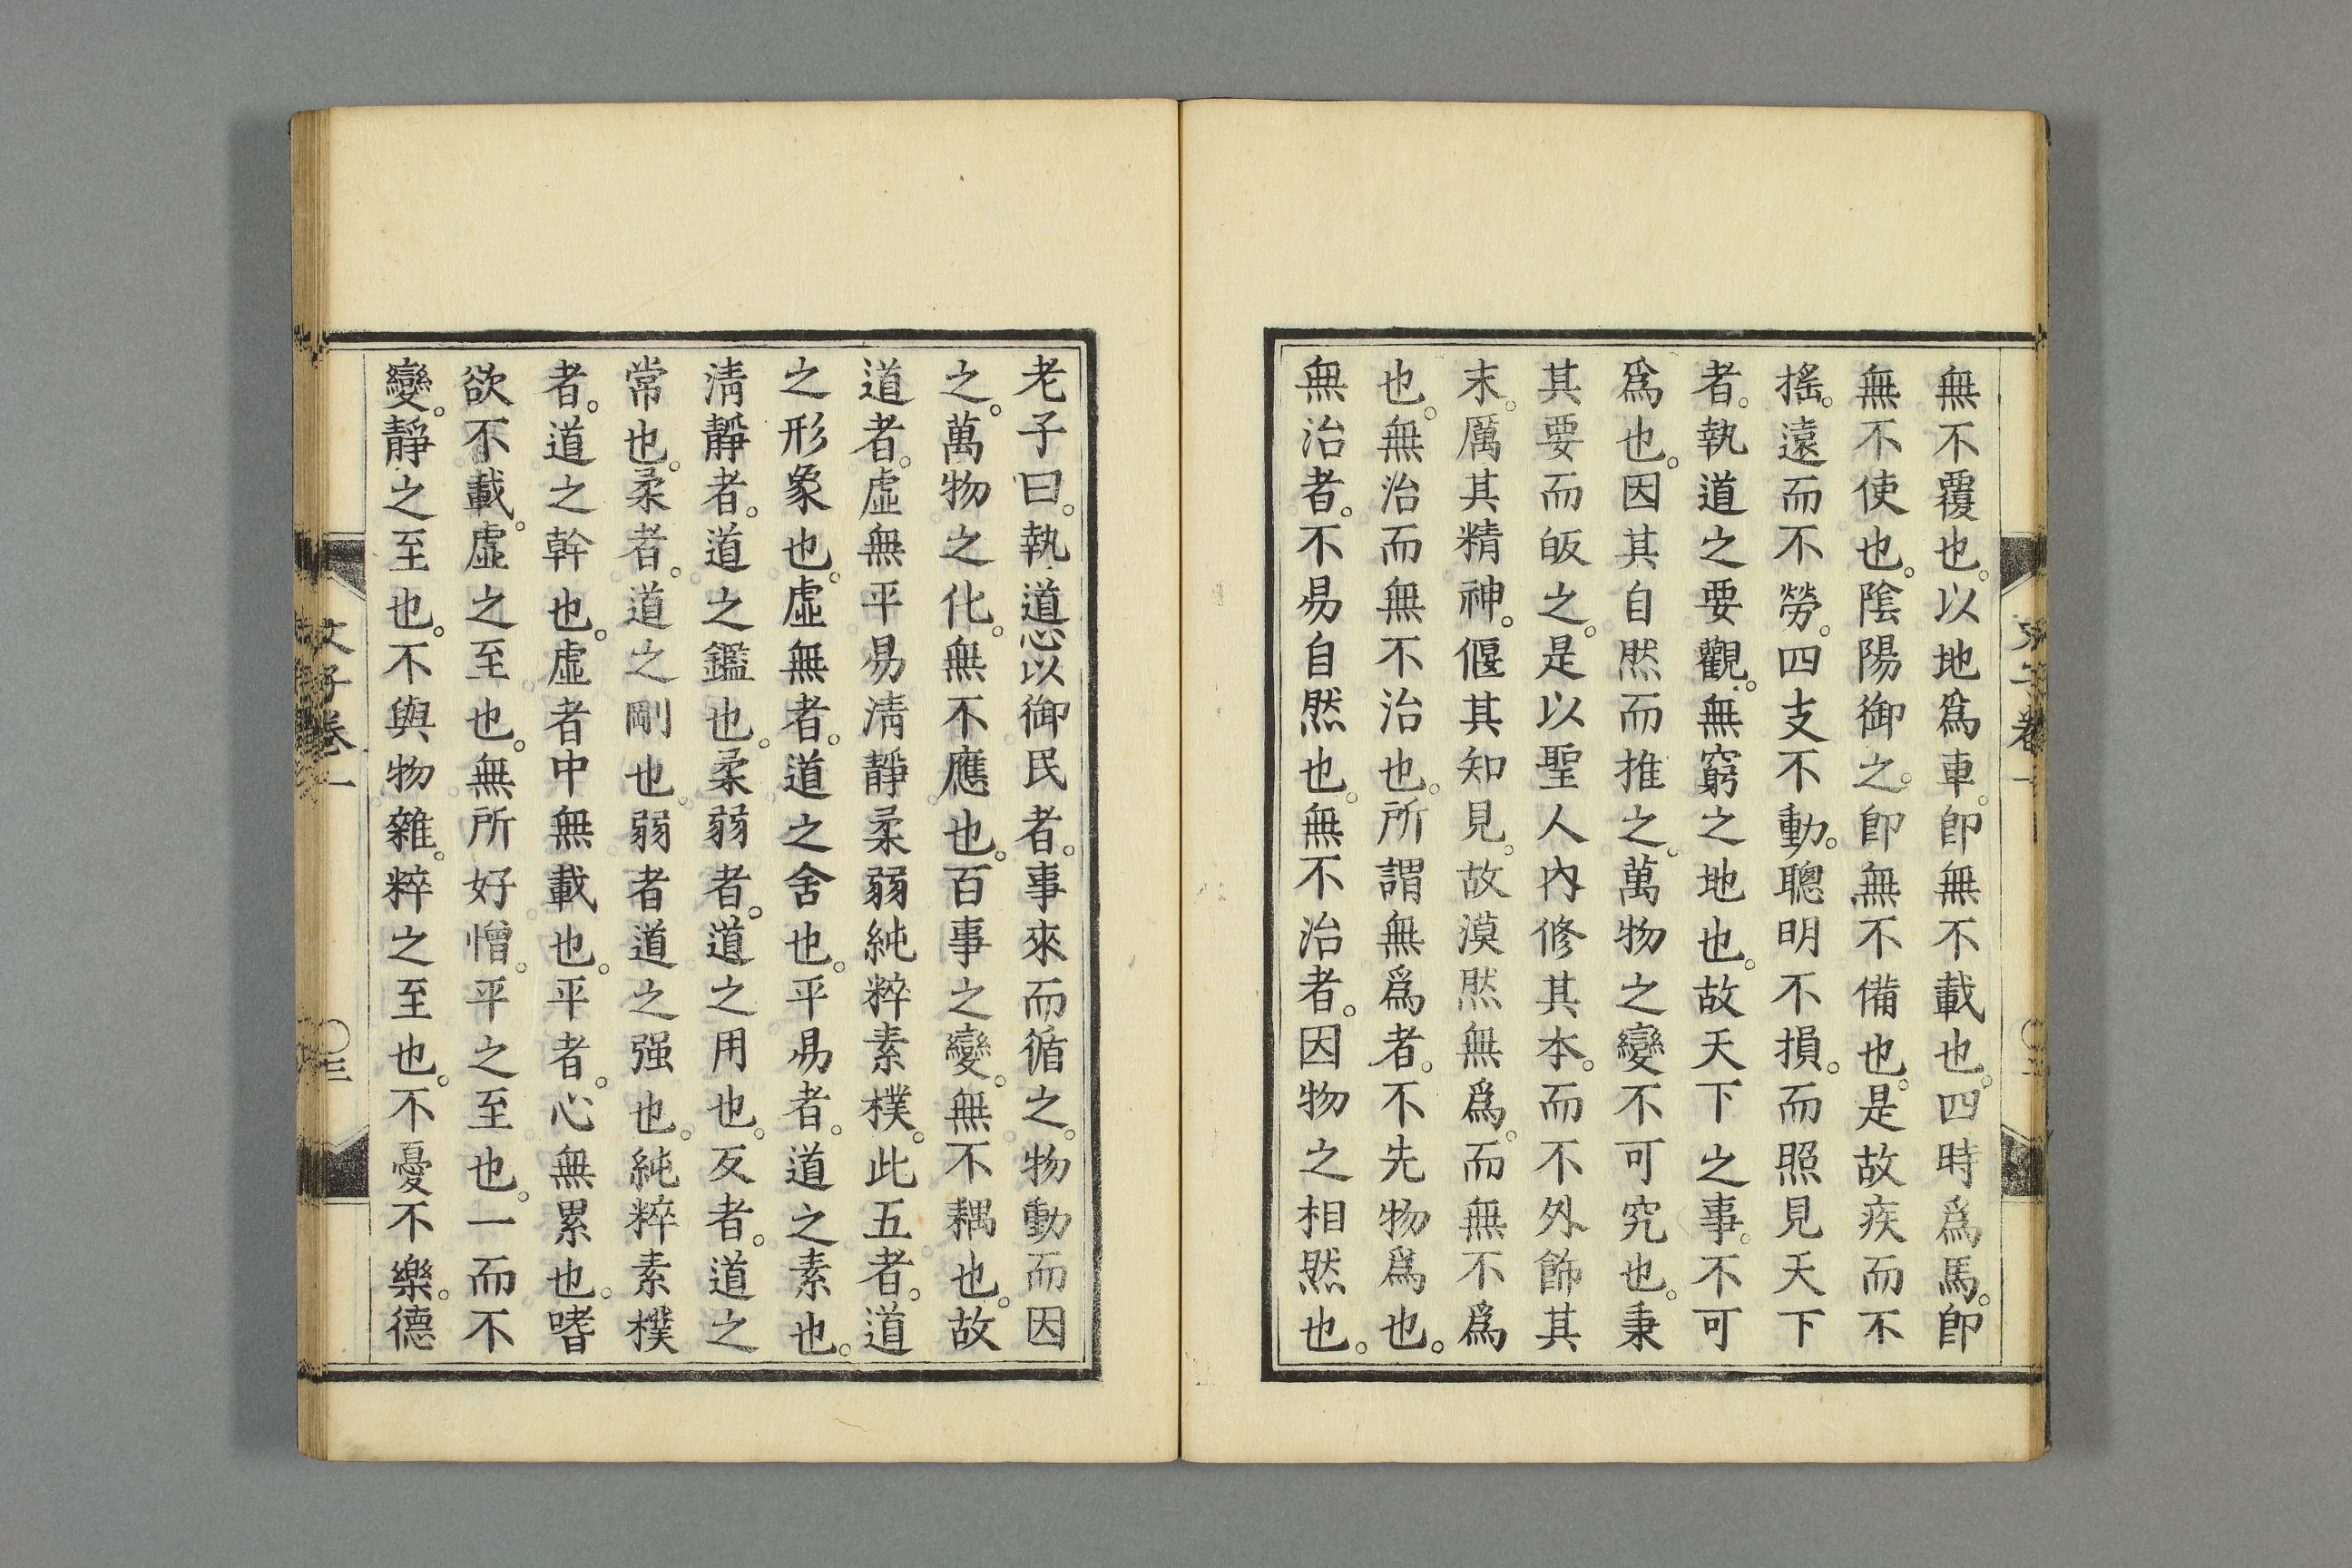 無不覆也。以地爲車。卽無不載也。四時爲馬。卽
無不使也。陰陽御之。卽無不備也。是故疾而不
搖。遠而不勞。四支不動。聰明不損。而照見天下
者。執道之要觀。無窮之地也。故天下之事。不可
爲也。因其自然而推之。萬物之變不可究也。秉
其要而皈之。是以聖人內修其本。而不外飾其
末。厲其精神。偃其知見。故漠然無爲。而無不爲
也。無治而無不治也。所謂無爲者。不先物爲也。
無治者。不易自然也。無不治者。因物之相然也。
老子曰。執道以御民者。事來而循之。物動而因
之。萬物之化。無不應也。百事之變。無不耦也。故
道者。虛無平易淸靜柔弱純粹素樸。此五者。道
之形象也。虛無者。道之舍也。平易者。道之素也。
淸靜者。道之鑑也。柔弱者。道之用也。反者。道之
常也。柔者。道之剛也。弱者道之强也。純粹素樸
者。道之幹也。虛者中無載也。平者。心無累也。嗜
欲不載。虛之至也。無所好憎。平之至也。一而不
變。靜之至也。不與物雜。粹之至也。不憂不樂。德
文子卷一
〇三